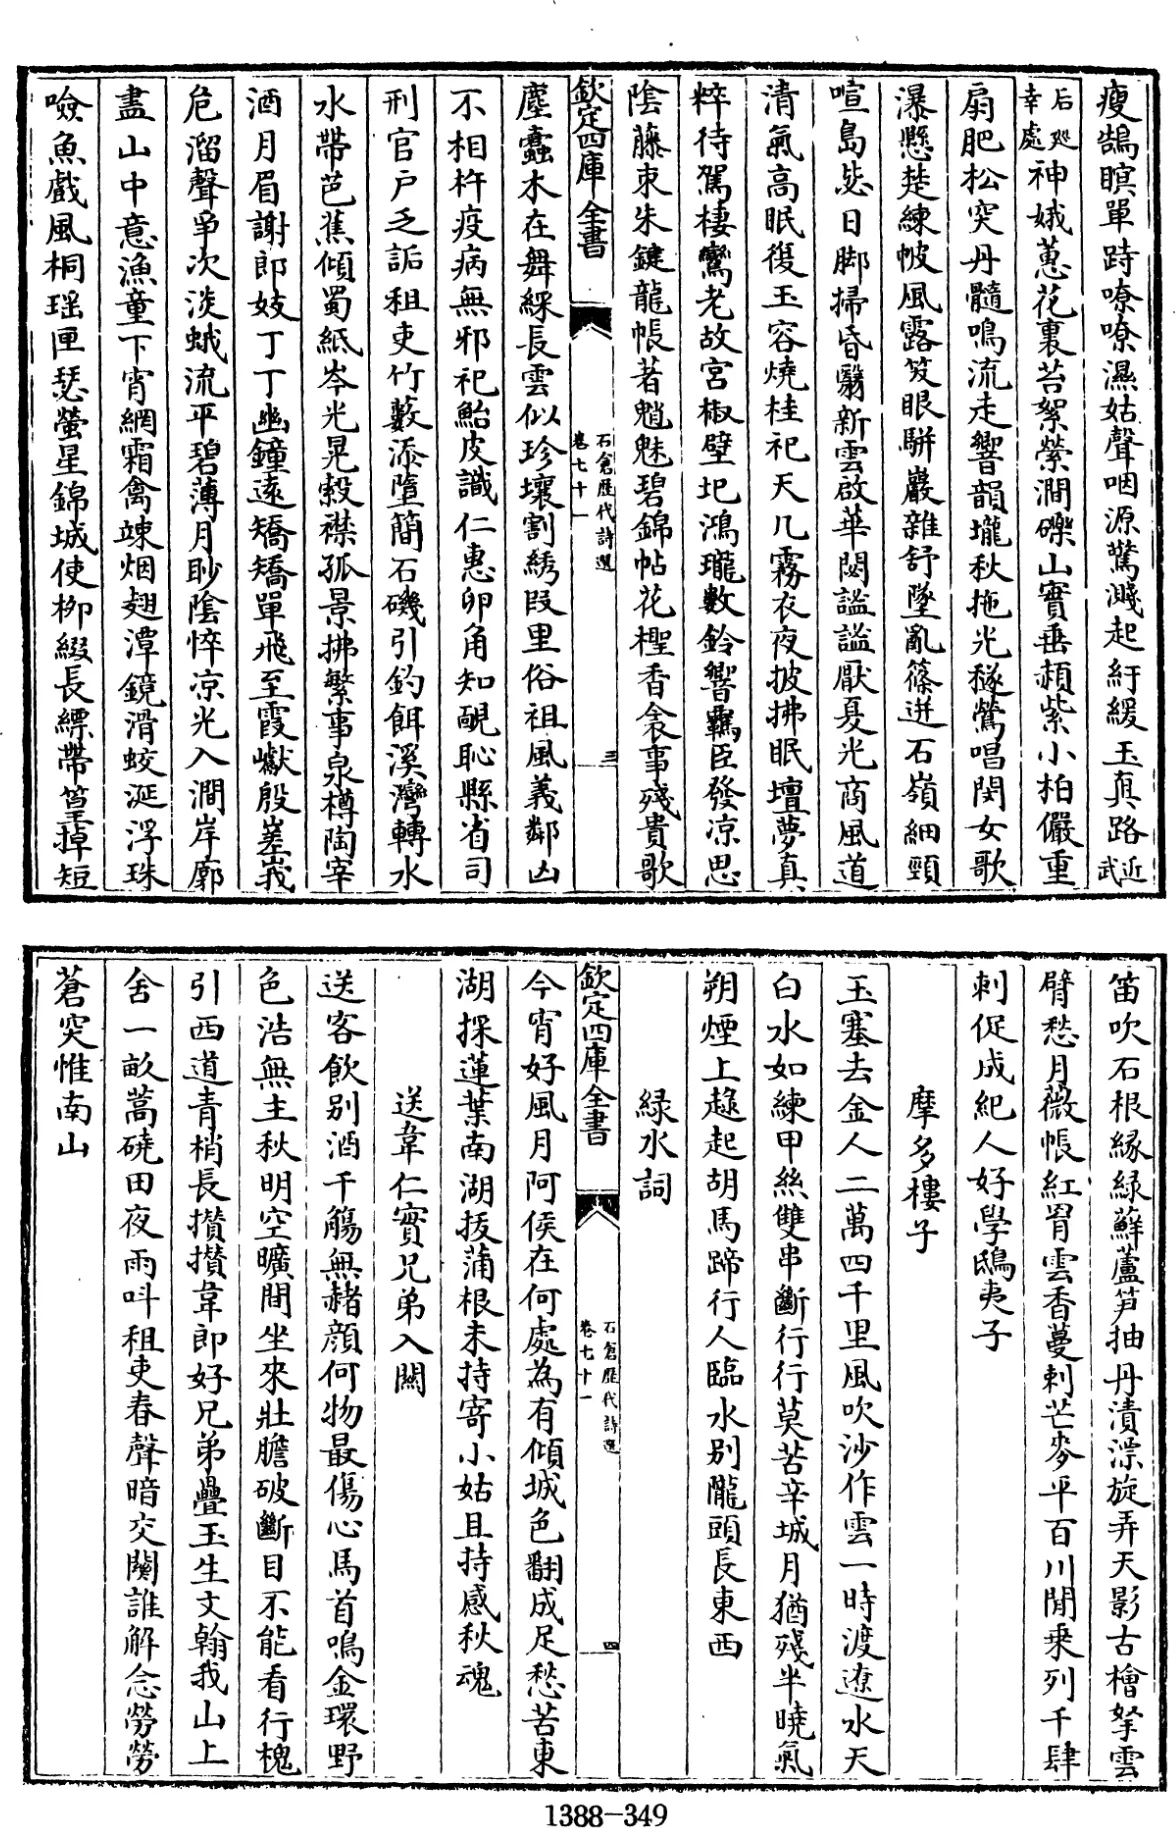 瘦鵠暝單跱嘹嘹濕姑聲咽源驚濺起紆緩玉真路近武
后巡幸處神娥蕙花裏苔絮縈澗礫山實垂頳紫小柏儼重
扇肥松突丹髓鳴流走響韻壠秋拖光鐩鶯唱閔女歌
瀑懸楚練帔風露笈眼駢巖雜舒墜亂篠迸石嶺細頸
喧島毖日脚掃昏翳新雲啟華閟謐謐厭夏光商風道
清氣高眠復玉容燒桂祀天几霧衣夜披拂眠壇夢真
粹待駕棲鸞老故宮椒壁圯鴻瓏數鈴響羈臣發凉思
陰藤束朱鍵龍帳著魈魅碧錦帖花檉香衾事殘貴歌
欽定四庫全書
石倉歷代詩選
卷七十一
三
塵蠹木在舞綵長雲似珍壤割綉段里俗祖風義鄰凶
不相杵疫病無邪祀鮐皮識仁惠丱角知靦恥縣省司
刑官户乏詬租吏竹藪添墮簡石磯引釣餌溪灣轉水
水帶芭蕉傾蜀紙岑光晃縠襟孤景拂繁事泉樽陶宰
酒月眉謝郎妓丁丁幽鐘遠矯矯單飛至霞巘殷嵳峩
危溜聲爭次淡蛾流平碧薄月眇陰悴凉光入澗岸廓
盡山中意漁童下宵網霜禽竦烟翅潭鏡滑蛟涎浮珠
噞魚戲風桐瑶匣瑟螢星錦城使栁綴長縹帶篁掉短
笛吹石根緣綠蘚蘆笋抽丹漬漂旋弄天影古檜拏雲
臂愁月薇帳紅罥雲香蔓刺芒麥平百川閒乘列千肆
刺促成紀人好學鴟夷子
摩多樓子
玉塞去金人二萬四千里風吹沙作雲一時渡遼水天
白水如練甲絲雙串斷行行莫苦辛城月猶殘半曉氣
朔煙上趢起胡馬蹄行人臨水別隴頭長東西
欽定四庫全書
石倉歷代詩選
卷七十一
四
緑水詞
今宵好風月阿侯在何處為有傾城色翻成足愁苦東
湖採蓮葉南湖拔蒲根未持寄小姑且持感秋魂
送韋仁實兄弟入闗
送客飲别酒千觴無赭顔何物最傷心馬首鳴金環野
色浩無主秋明空曠間坐來壯膽破斷目不能看行槐
引西道青梢長攢攢韋郎好兄弟疊玉生文翰我山上
舍一畝蒿磽田夜雨呌租吏春聲暗交闗誰解念勞勞
蒼突惟南山
1388-349